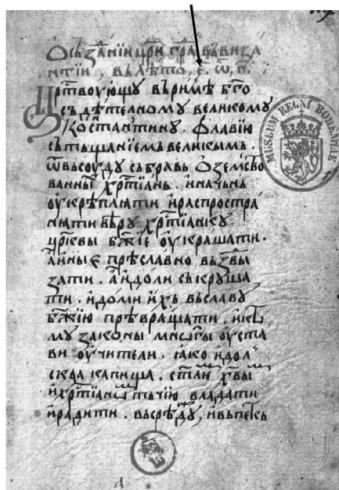 Ѡ създанїи црⷭ҇кагѡ гра в ви за
нтїи, въ лѣто, ҂є. ѿ, п.
Црⷭ҇твоующꙋ въ римѣ бг҃о
съдѣтелномꙋ великомꙋ
Костантинꙋ. Флавїю
съ тъщанїемъ великымъ.
ѿвьсоудꙋ събравь
ваннїи хрⷭ҇тїань. и начьнь
оукрѣплꙗти и распростра
нꙗти вѣрꙋ хрⷭ҇тїанскꙋ.
цр҃квы бж҃їе оукрашати.
а ины є прѣславно въз҆
зати. а идоли съкрꙋша
ти. и доми ихъ въ славꙋ
бж҃їю прѣвращати. и къ
мꙋ законы мнѡгы оуста
ви оучители. ꙗко идол
скаа капища. ст҃ли хв҃ы
и хрⷭ҇тїанѡⷨ тъчїю владати
и радити. въ срѣдꙋ, и въ пєкъ
MUSEUM REGNI BOHEMIAE